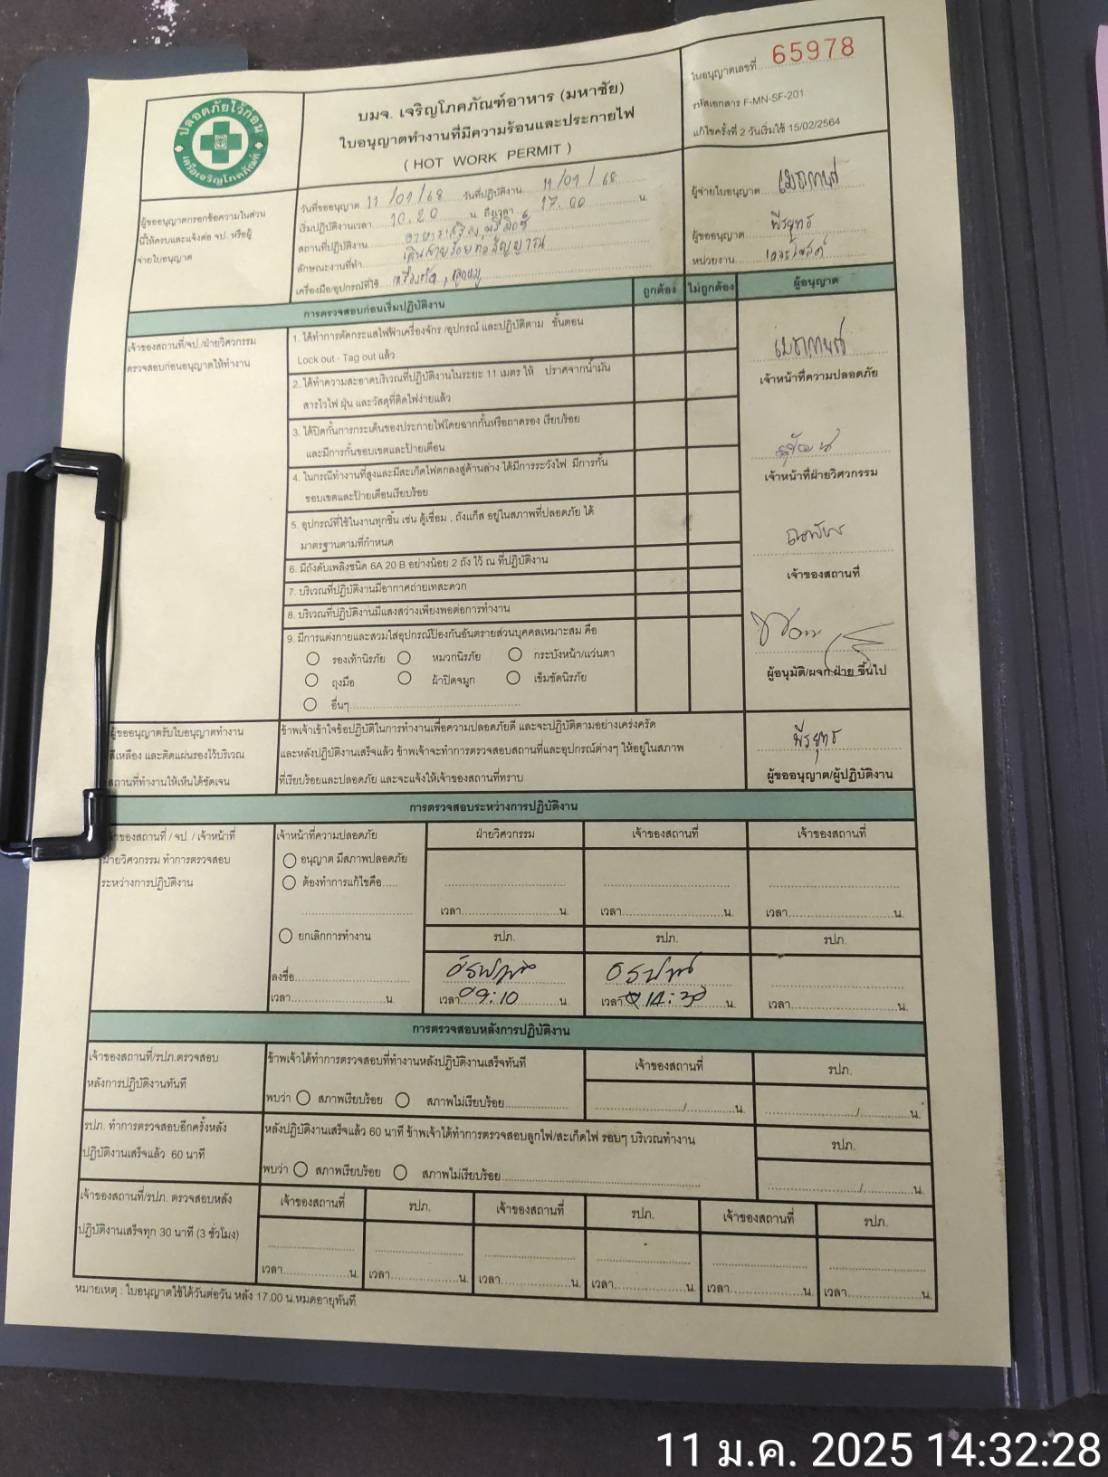 ปลอดภัยไว้ก่อน
เครือเจริญโภคภัณฑ์
บมจ. เจริญโภคภัณฑ์อาหาร (มหาชัย)
ใบอนุญาตทำงานที่มีความร้อนและประกายไฟ
( HOT WORK PERMIT )
ใบอนุญาตเลขที่ 65978
รหัสเอกสาร F-MN-SF-201
แก้ไขครั้งที่ 2 วันเริ่มใช้ 15/02/2564
ผู้ขออนุญาตกรอกข้อความในส่วน
นี้ให้ครบและแจ้งต่อ จป. หรือผู้
จ่ายใบอนุญาต
วันที่ขออนุญาต 11/01/68 วันที่ปฏิบัติงาน 11/01/68
เริ่มปฏิบัติงานเวลา 10.20 น. ถึงเวลา 17.00 น.
สถานที่ปฏิบัติงาน
ลักษณะงานที่ทำ เดินสายร้อยท่อสัญญาณ
เครื่องมือ/อุปกรณ์ที่ใช้ เครื่องตัด
ผู้จ่ายใบอนุญาต
ผู้ขออนุญาต พีรยุทธ
หน่วยงาน
การตรวจสอบก่อนเริ่มปฏิบัติงาน
ถูกต้อง
ไม่ถูกต้อง
ผู้อนุญาต
เจ้าของสถานที่/จป./ฝ่ายวิศวกรรม
ตรวจสอบก่อนอนุญาตให้ทำงาน
1. ได้ทำการตัดกระแสไฟฟ้าเครื่องจักร /อุปกรณ์ และปฏิบัติตาม ขั้นตอน
Lock out - Tag out แล้ว
2. ได้ทำความสะอาดบริเวณที่ปฏิบัติงานในระยะ 11 เมตร ให้ ปราศจากน้ำมัน
สารไวไฟ ฝุ่น และวัสดุที่ติดไฟง่ายแล้ว
3. ได้ปิดกั้นการกระเด็นของประกายไฟโดยฉากกั้นหรือถาดรอง เรียบร้อย
และมีการกั้นขอบเขตและป้ายเตือน
4. ในกรณีทำงานที่สูงและมีสะเก็ดไฟตกลงสู่ด้านล่าง ได้มีการระวังไฟ มีการกั้น
ขอบเขตและป้ายเตือนเรียบร้อย
5. อุปกรณ์ที่ใช้ในงานทุกชิ้น เช่น ตู้เชื่อม , ถังแก๊ส อยู่ในสภาพที่ปลอดภัย ได้
มาตรฐานตามที่กำหนด
6. มีถังดับเพลิงชนิด 6A 20 B อย่างน้อย 2 ถัง ไว้ ณ ที่ปฏิบัติงาน
7. บริเวณที่ปฏิบัติงานมีอากาศถ่ายเทสะดวก
8. บริเวณที่ปฏิบัติงานมีแสงสว่างเพียงพอต่อการทำงาน
9. มีการแต่งกายและสวมใส่อุปกรณ์ป้องกันอันตรายส่วนบุคคลเหมาะสม คือ
รองเท้านิรภัย หมวกนิรภัย กระบังหน้า/แว่นตา
ถุงมือ ผ้าปิดจมูก เข็มขัดนิรภัย
อื่นๆ
เจ้าหน้าที่ความปลอดภัย
เจ้าหน้าที่ฝ่ายวิศวกรรม
เจ้าของสถานที่
ผู้อนุมัติ/ผจก.ฝ่าย ขึ้นไป
ผู้ขออนุญาตรับใบอนุญาตทำงาน
สีเหลือง และติดแผ่นรองไว้บริเวณ
สถานที่ทำงานให้เห็นได้ชัดเจน
ข้าพเจ้าเข้าใจข้อปฏิบัติในการทำงานเพื่อความปลอดภัยดี และจะปฏิบัติตามอย่างเคร่งครัด
และหลังปฏิบัติงานเสร็จแล้ว ข้าพเจ้าจะทำการตรวจสอบสถานที่และอุปกรณ์ต่างๆ ให้อยู่ในสภาพ
ที่เรียบร้อยและปลอดภัย และจะแจ้งให้เจ้าของสถานที่ทราบ
พีรยุทธ
ผู้ขออนุญาต/ผู้ปฏิบัติงาน
การตรวจสอบระหว่างการปฏิบัติงาน
เจ้าของสถานที่ / จป. / เจ้าหน้าที่
ฝ่ายวิศวกรรม ทำการตรวจสอบ
ระหว่างการปฏิบัติงาน
เจ้าหน้าที่ความปลอดภัย
อนุญาต มีสภาพปลอดภัย
ต้องทำการแก้ไขคือ
ยกเลิกการทำงาน
ลงชื่อ
เวลา น.
ฝ่ายวิศวกรรม เจ้าของสถานที่ เจ้าของสถานที่
เวลา น. เวลา น. เวลา น.
รปภ. รปภ. รปภ.
เวลา 09:10 น. เวลา 14:30 น. เวลา น.
การตรวจสอบหลังการปฏิบัติงาน
เจ้าของสถานที่/รปภ.ตรวจสอบ
หลังการปฏิบัติงานทันที
ข้าพเจ้าได้ทำการตรวจสอบที่ทำงานหลังปฏิบัติงานเสร็จทันที
พบว่า สภาพเรียบร้อย สภาพไม่เรียบร้อย
เจ้าของสถานที่ รปภ.
/ น. / น.
รปภ. ทำการตรวจสอบอีกครั้งหลัง
ปฏิบัติงานเสร็จแล้ว 60 นาที
หลังปฏิบัติงานเสร็จแล้ว 60 นาที ข้าพเจ้าได้ทำการตรวจสอบลูกไฟ/สะเก็ดไฟ รอบๆ บริเวณทำงาน
พบว่า สภาพเรียบร้อย สภาพไม่เรียบร้อย
รปภ.
/ น.
เจ้าของสถานที่/รปภ. ตรวจสอบหลัง
ปฏิบัติงานเสร็จทุก 30 นาที (3 ชั่วโมง)
เจ้าของสถานที่ รปภ. เจ้าของสถานที่ รปภ. เจ้าของสถานที่ รปภ.
เวลา น. เวลา น. เวลา น. เวลา น. เวลา น. เวลา น.
หมายเหตุ : ใบอนุญาตใช้ได้วันต่อวัน หลัง 17.00 น.หมดอายุทันที
11 ม.ค. 2025 14:32:28